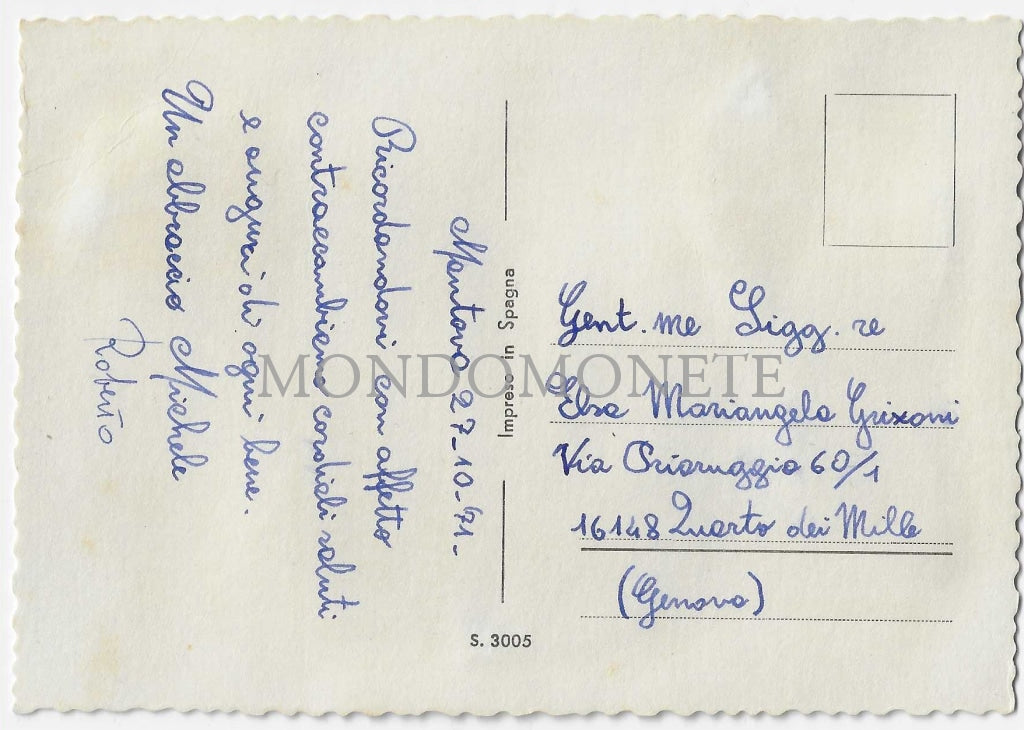 Mantova 27-10-'71-
Ricordandovi con affetto
contraccambiamo cordiali saluti
e auguri di ogni bene.
Un abbraccio Michele
Roberto
Impreso in Spagna
S. 3005
Gent.me Sigg.re
Elsa Mariangela Grixoni
Via Priaruggia 60/1
16148 Quarto dei Mille
(Genova)
MONDOMONETE